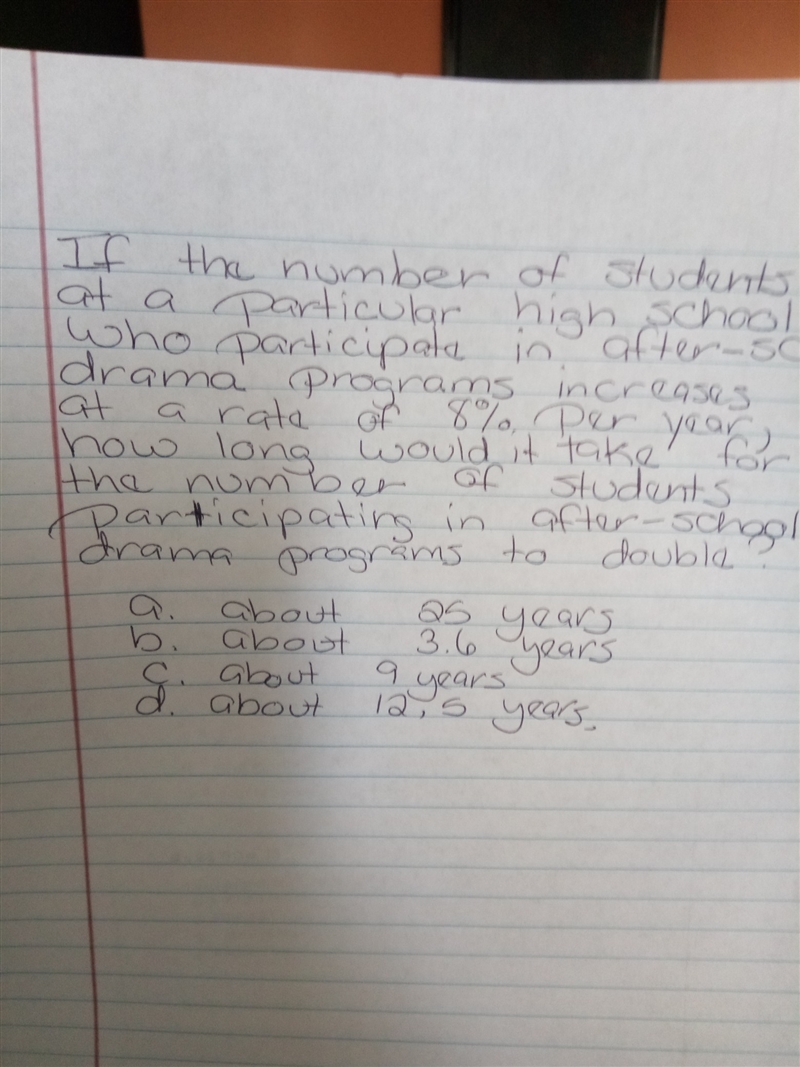 If the number of students
at a particular high school
who participate in after-sc
drama programs increases
at a rate of 8% per year,
how long would it take for
the number of students
participating in after-school
drama programs to double?
a. about 25 years
b. about 3.6 years
c. about 9 years
d. about 12.5 years.